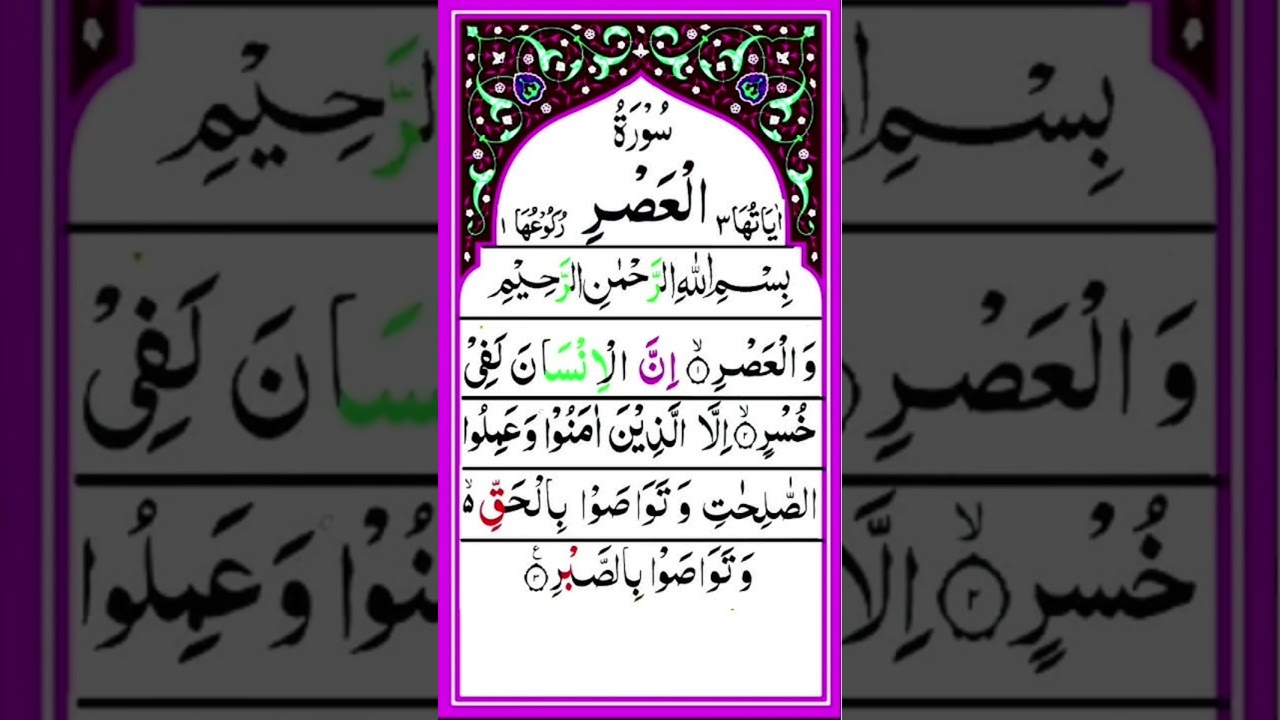 سُوْرَةُ
اٰيَاتُهَا ٣ الْعَصْرِ رُكُوْعُهَا ١
بِسْمِ اللّٰهِ الرَّحْمٰنِ الرَّحِيْمِ
وَالْعَصْرِ ۙ‏﴿۱﴾ اِنَّ الْاِنْسَانَ لَفِىْ
خُسْرٍ ۙ‏﴿۲﴾ اِلَّا الَّذِيْنَ اٰمَنُوْا وَعَمِلُوا
الصّٰلِحٰتِ وَتَوَاصَوْا بِالْحَقِّ ۙ۬
وَتَوَاصَوْا بِالصَّبْرِ ﴿۳﴾